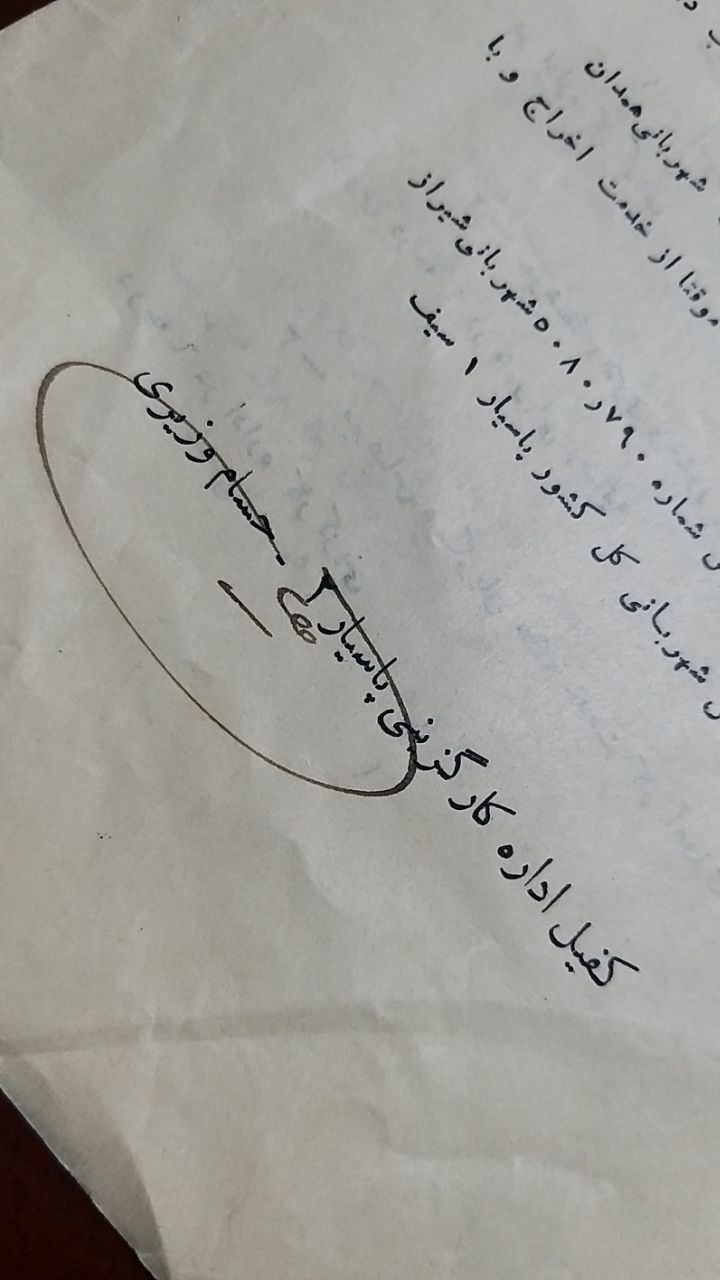 شهربانی همدان
موقتا از خدمت اخراج و با
شماره ۵۰۸۰ر۷۹۰ شهربانی شیراز
شهربانی کل کشور پاسیار ۱ سیف
کفیل اداره کارگزینی پاسیار ۲ - حسام وزیری